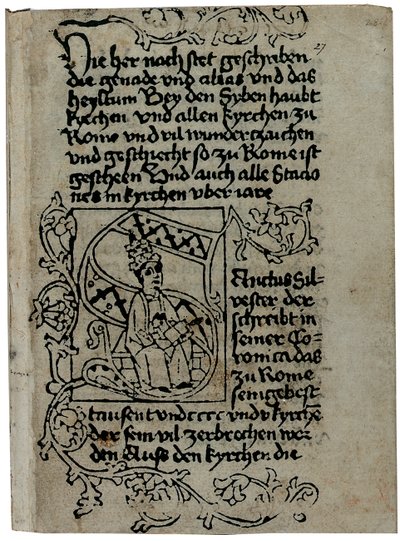 27
Hie her nach stet geschriben
die genade und ablas und das
heyltum Bey den Syben haubt
kyrchen und allen kyrchen zu
Rome und vil wunderczaichen
und geschiecht so zu Rome ist
gescheen Und auch alle Stacio
nes in kyrchen vber iare
Sanctus Sil-
vester der
schreibt in
seiner Co-
ronica das
zu Rome
sein gebest
tausent und cccc und v kyrche
der sein vil zerbrochen wor
den Auss den kyrchen die